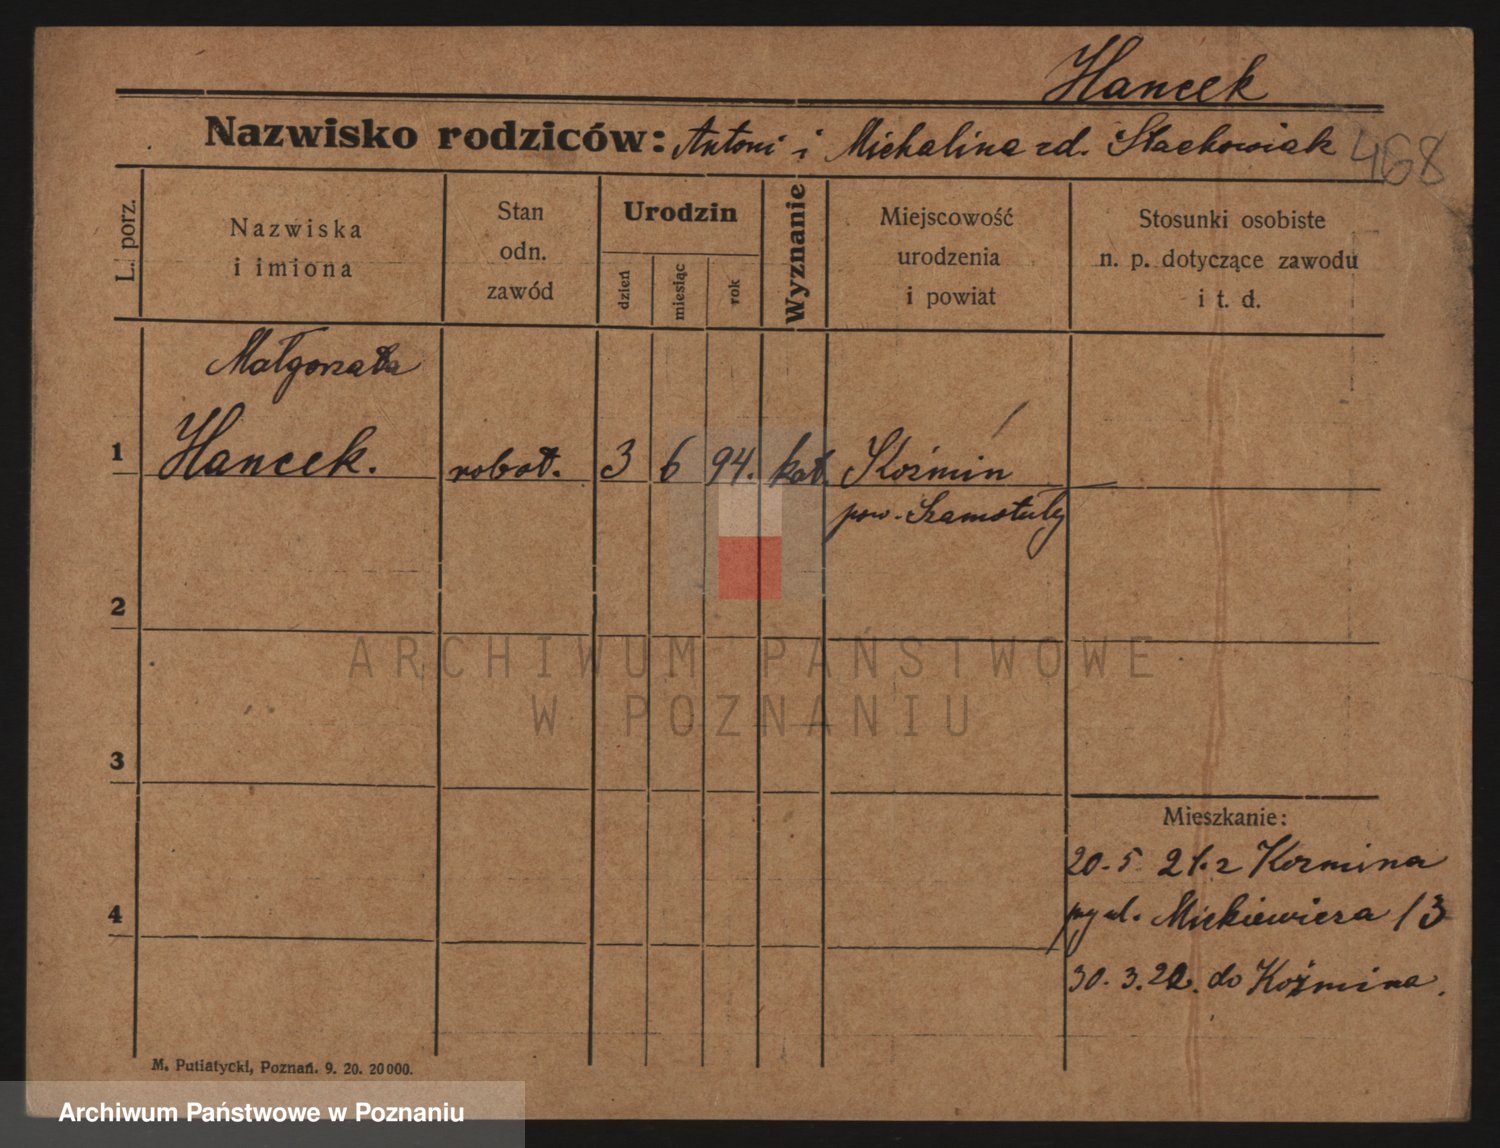 Hancek
Nazwisko rodziców: Antoni i Michalina zd. Stachowiak 468
L. porz.
Nazwiska
i imiona
Stan
odn.
zawód
Urodzin
dzień
miesiąc
rok
Wyznanie
Miejscowość
urodzenia
i powiat
Stosunki osobiste
n. p. dotyczące zawodu
i t. d.
Małgorzata
1 Hancek. robot. 3 6 94. kat. Koźmin
pow. Szamotuły
2
ARCHIWUM PAŃSTWOWE
W POZNANIU
3
Mieszkanie:
20. 5 21. z Kozmina
4
Mickiewicza 13
30. 3. 22. do Koźmina.
M. Putiatycki, Poznań. 9. 20. 20000.
Archiwum Państwowe w Poznaniu